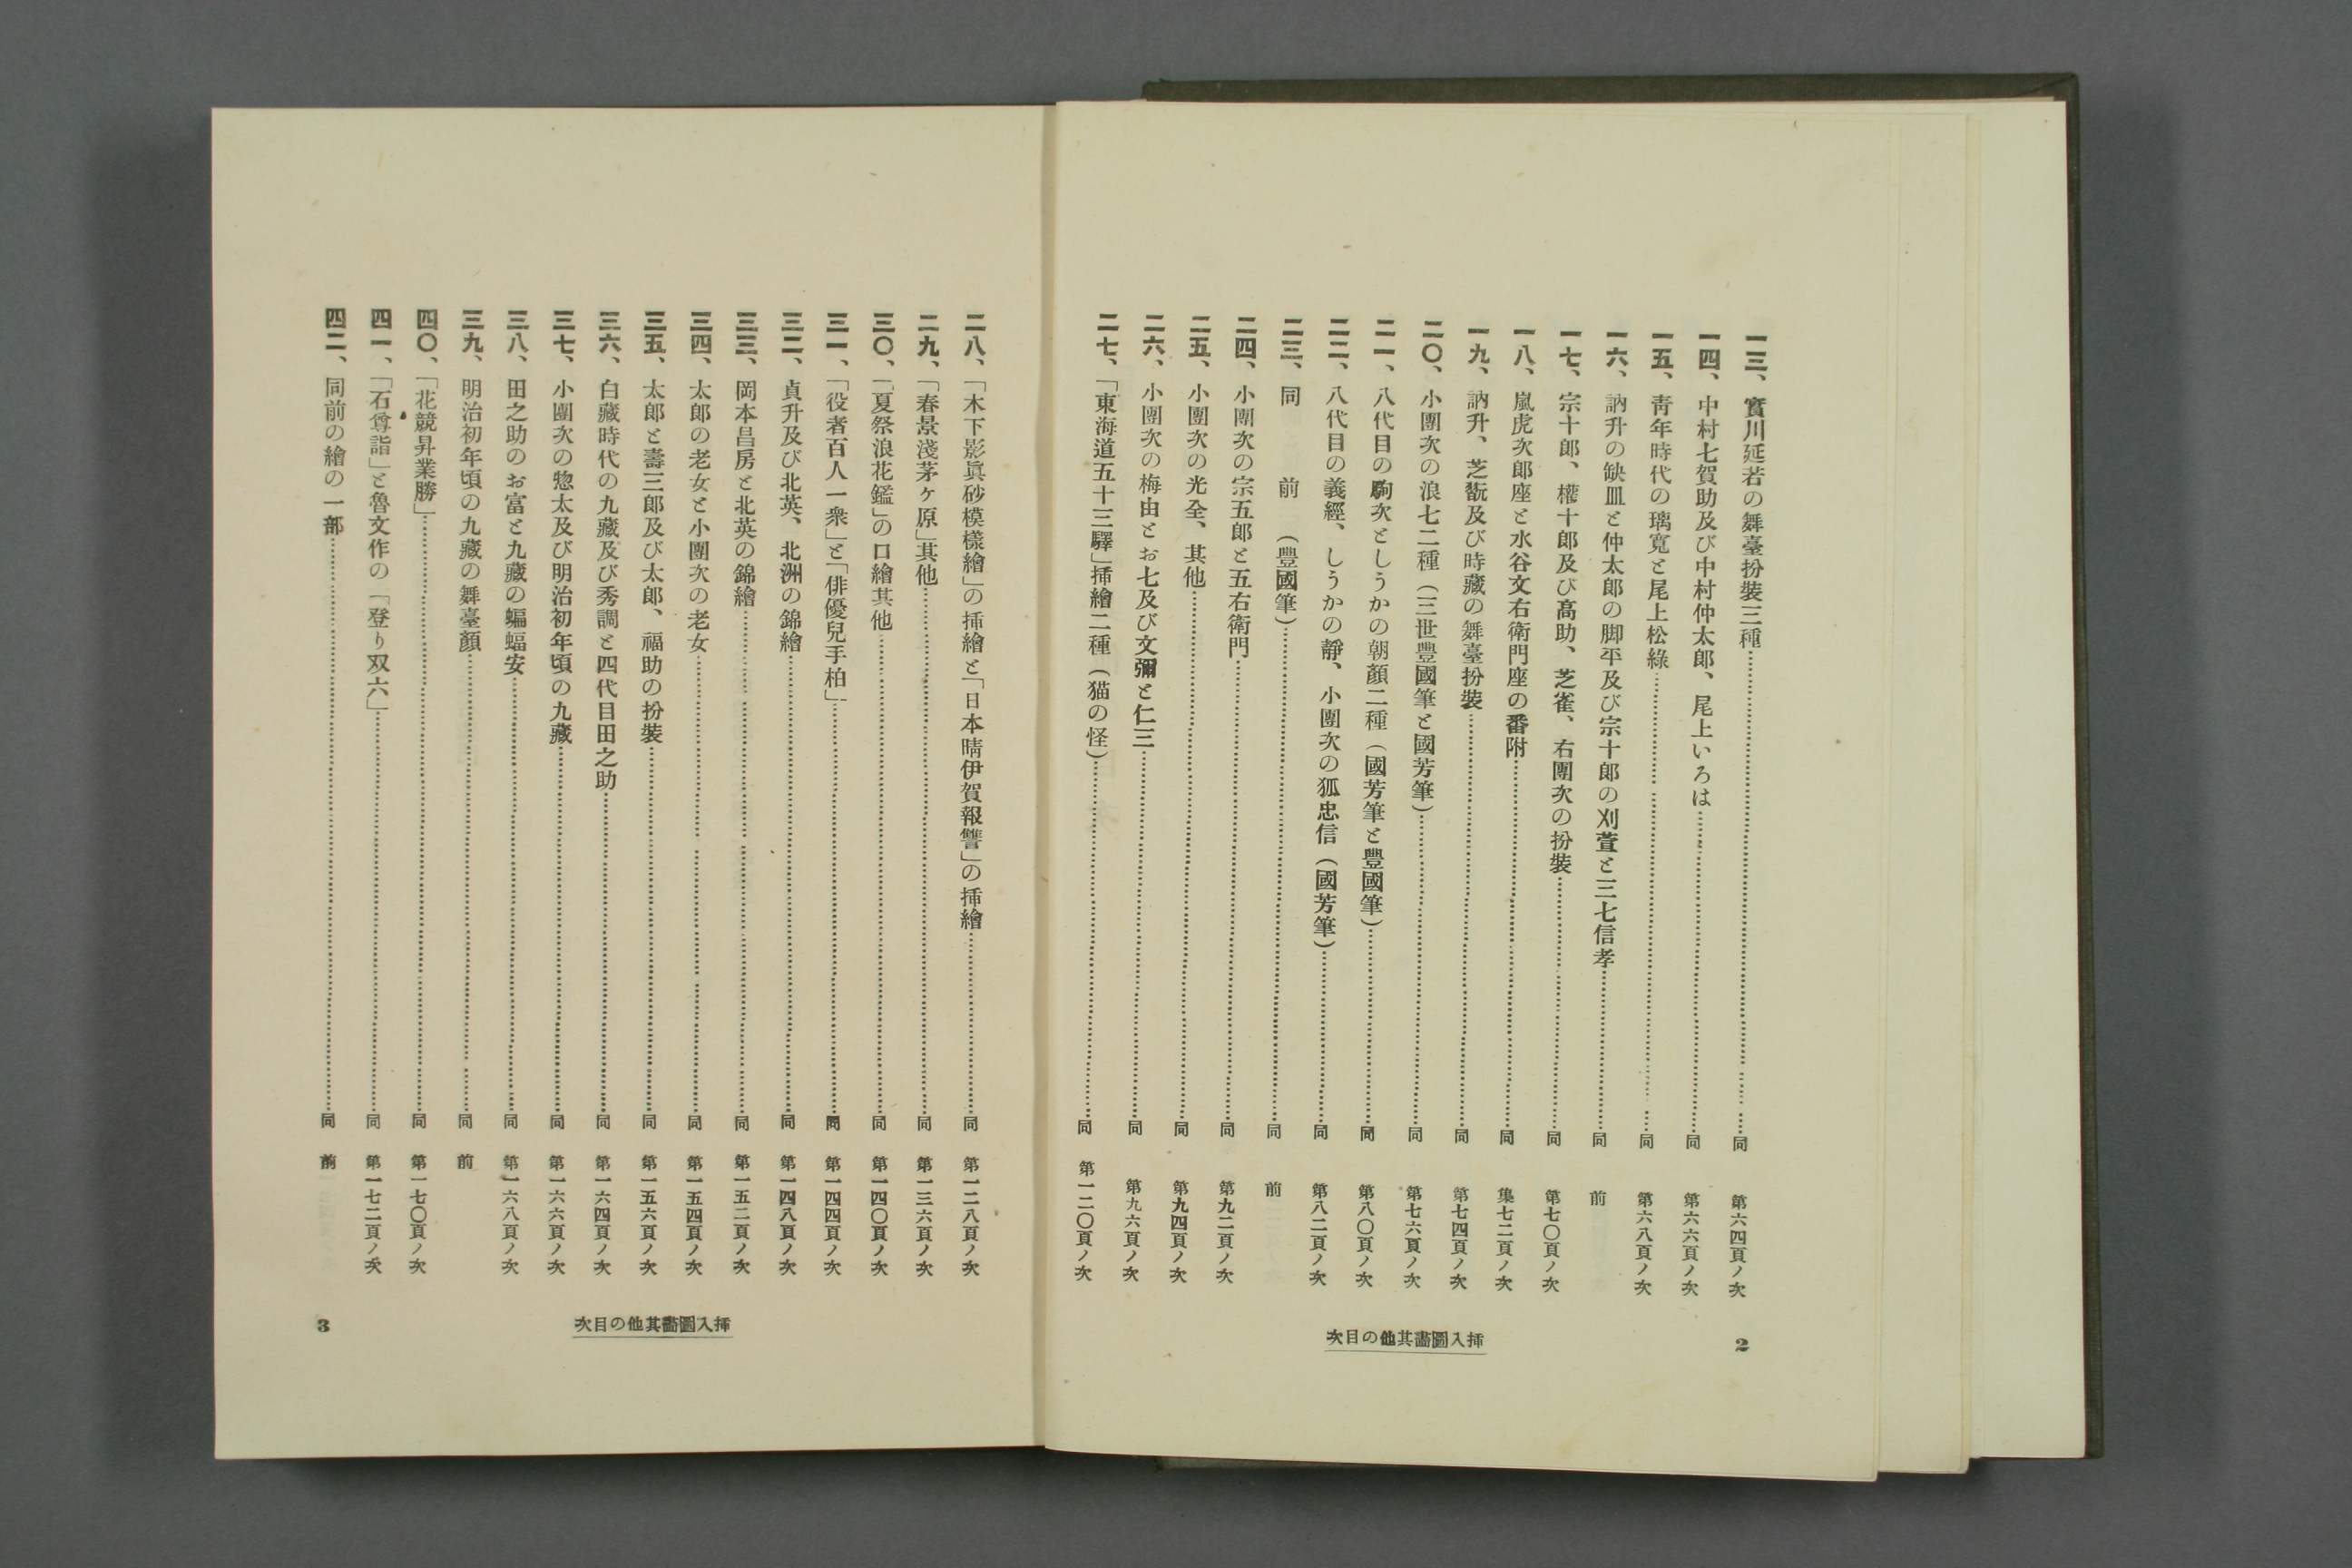 一三、實川延若の舞臺扮裝三種……同 第六四頁ノ次
一四、中村七賀助及び中村仲太郎、尾上いろは……同 第六六頁ノ次
一五、靑年時代の璃寬と尾上松綠……同 第六八頁ノ次
一六、訥升の缺皿と仲太郎の脚平及び宗十郎の刈萱と三七信孝……同 前
一七、宗十郎、權十郎及び高助、芝雀、右團次の扮裝……同 第七〇頁ノ次
一八、嵐虎次郎座と水谷文右衞門座の番附……同 集七二頁ノ次
一九、訥升、芝翫及び時藏の舞臺扮裝……同 第七四頁ノ次
二〇、小團次の浪七二種（三世豐國筆と國芳筆）……同 第七六頁ノ次
二一、八代目の駒次としうかの朝顏二種（國芳筆と豐國筆）……同 第八〇頁ノ次
二二、八代目の義經、しうかの靜、小團次の狐忠信（國芳筆）……同 第八二頁ノ次
二三、同 前（豐國筆）……同 前
二四、小團次の宗五郎と五右衞門……同 第九二頁ノ次
二五、小團次の光全、其他……同 第九四頁ノ次
二六、小團次の梅由とお七及び文彌と仁三……同 第九六頁ノ次
二七、「東海道五十三驛」揷繪二種（猫の怪）……同 第一二〇頁ノ次
次目の他其畵圖入揷
2
二八、「木下影眞砂模樣繪」の揷繪と「日本晴伊賀報讐」の揷繪……同 第一二八頁ノ次
二九、「春景淺茅ヶ原」其他……同 第一三六頁ノ次
三〇、「夏祭浪花鑑」の口繪其他……同 第一四〇頁ノ次
三一、「役者百人一衆」と「俳優兒手柏」……同 第一四四頁ノ次
三二、貞升及び北英、北洲の錦繪……同 第一四八頁ノ次
三三、岡本昌房と北英の錦繪……同 第一五二頁ノ次
三四、太郎の老女と小團次の老女……同 第一五四頁ノ次
三五、太郎と壽三郎及び太郎、福助の扮裝……同 第一五六頁ノ次
三六、白藏時代の九藏及び秀調と四代目田之助……同 第一六四頁ノ次
三七、小團次の惣太及び明治初年頃の九藏……同 第一六六頁ノ次
三八、田之助のお富と九藏の蝙蝠安……同 第一六八頁ノ次
三九、明治初年頃の九藏の舞臺顏……同 前
四〇、「花競昇業勝」……同 第一七〇頁ノ次
四一、「石尊詣」と魯文作の「登り双六」……同 第一七二頁ノ次
四二、同前の繪の一部……同 前
次目の他其畵圖入揷
3